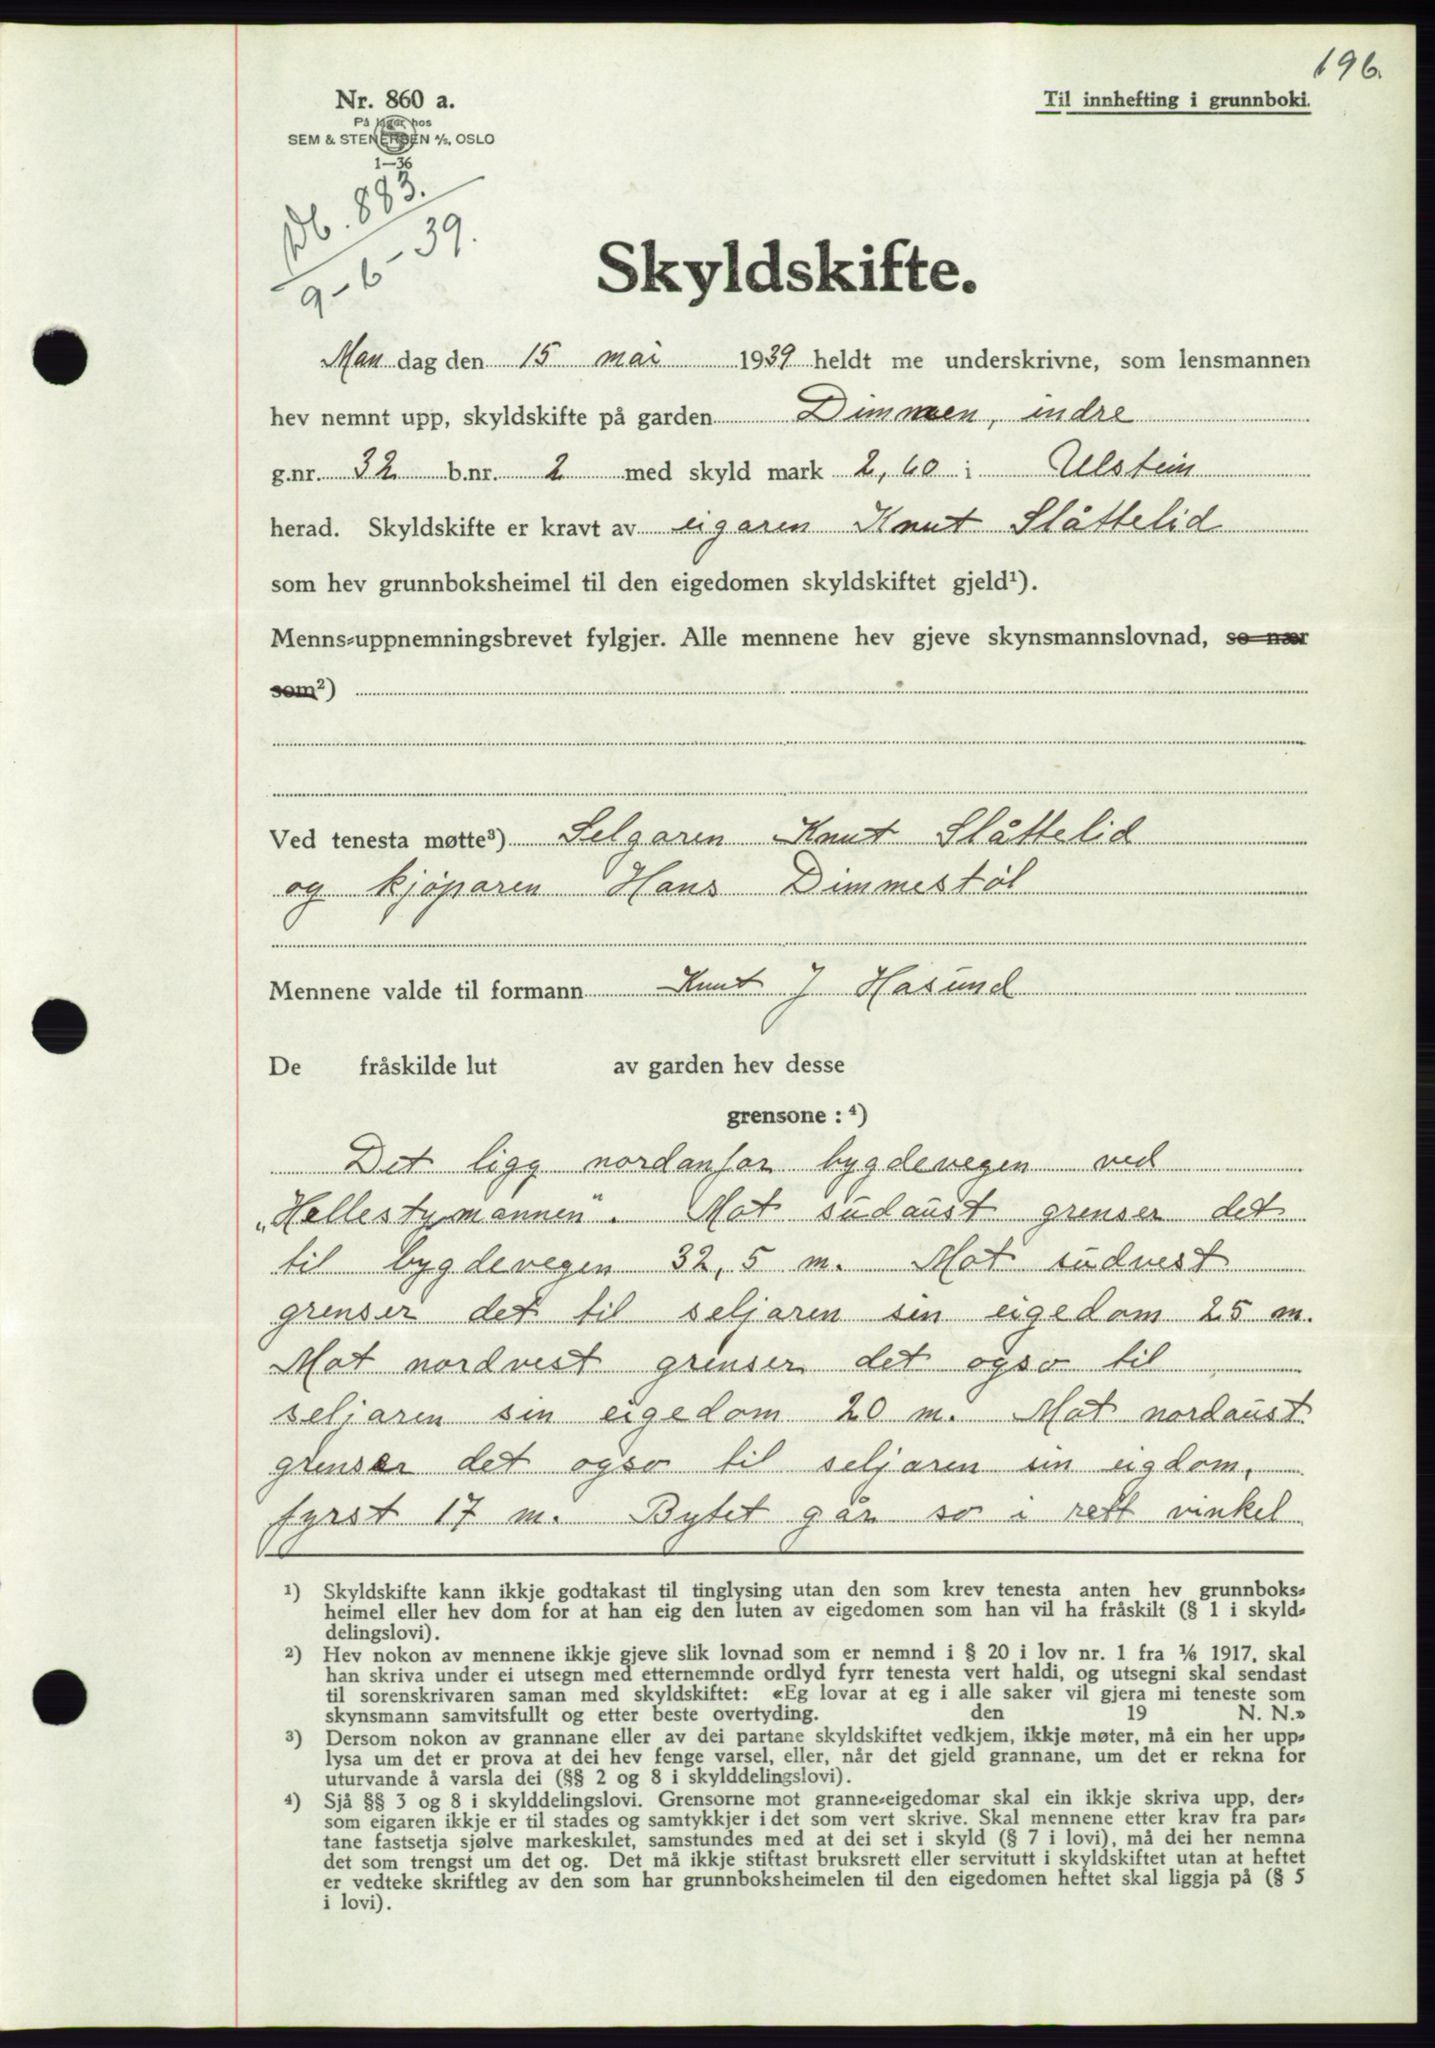 196.
Nr. 860 a.
Til innhefting i grunnboki.
På lager hos
SEM & STENERSEN A/S, OSLO
1—36
Db. 883.
9-6-39.
Skyldskifte.
Man dag den 15 mai 1939 heldt me underskrivne, som lensmannen
hev nemnt upp, skyldskifte på garden Dimmen, indre
g.nr. 32 b.nr. 2 med skyld mark 2,60 i Ulstein
herad. Skyldskifte er kravt av eigaren Knut Slåttelid
som hev grunnboksheimel til den eigedomen skyldskiftet gjeld¹).
Menns-uppnemningsbrevet fylgjer. Alle mennene hev gjeve skynsmannslovnad, so nær
som²)
Ved tenesta møtte³) Selgaren Knut Slåttelid
og kjøparen Hans Dimmestøl
Mennene valde til formann Knut J Hasund
De fråskilde lut av garden hev desse
grensone : ⁴)
Det ligg nordanfor bygdevegen ved
„Hellestymannen". Mot sudaust grenser det
til bygdevegen 32,5 m. Mot sudvest
grenser det til seljaren sin eigedom 25 m.
Mot nordvest grenser det ogso til
seljaren sin eigedom 20 m. Mot nordaust
grenser det ogso til seljaren sin eigdom,
fyrst 17 m. Bytet går so i rett vinkel
¹) Skyldskifte kann ikkje godtakast til tinglysing utan den som krev tenesta anten hev grunnboks-
heimel eller hev dom for at han eig den luten av eigedomen som han vil ha fråskilt (§ 1 i skyld-
delingslovi).
²) Hev nokon av mennene ikkje gjeve slik lovnad som er nemnd i § 20 i lov nr. 1 fra 1/6 1917, skal
han skriva under ei utsegn med etternemnde ordlyd fyrr tenesta vert haldi, og utsegni skal sendast
til sorenskrivaren saman med skyldskiftet: «Eg lovar at eg i alle saker vil gjera mi teneste som
skynsmann samvitsfullt og etter beste overtyding. den 19 N. N.»
³) Dersom nokon av grannane eller av dei partane skyldskiftet vedkjem, ikkje møter, må ein her upp-
lysa um det er prova at dei hev fenge varsel, eller, når det gjeld grannane, um det er rekna for
uturvande å varsla dei (§§ 2 og 8 i skylddelingslovi).
⁴) Sjå §§ 3 og 8 i skylddelingslovi. Grensorne mot granne-eigedomar skal ein ikkje skriva upp, der-
som eigaren ikkje er til stades og samtykkjer i det som vert skrive. Skal mennene etter krav fra par-
tane fastsetja sjølve markeskilet, samstundes med at dei set i skyld (§ 7 i lovi), må dei her nemna
det som trengst um det og. Det må ikkje stiftast bruksrett eller servitutt i skyldskiftet utan at heftet
er vedteke skriftleg av den som har grunnboksheimelen til den eigedomen heftet skal liggja på (§ 5
i lovi).